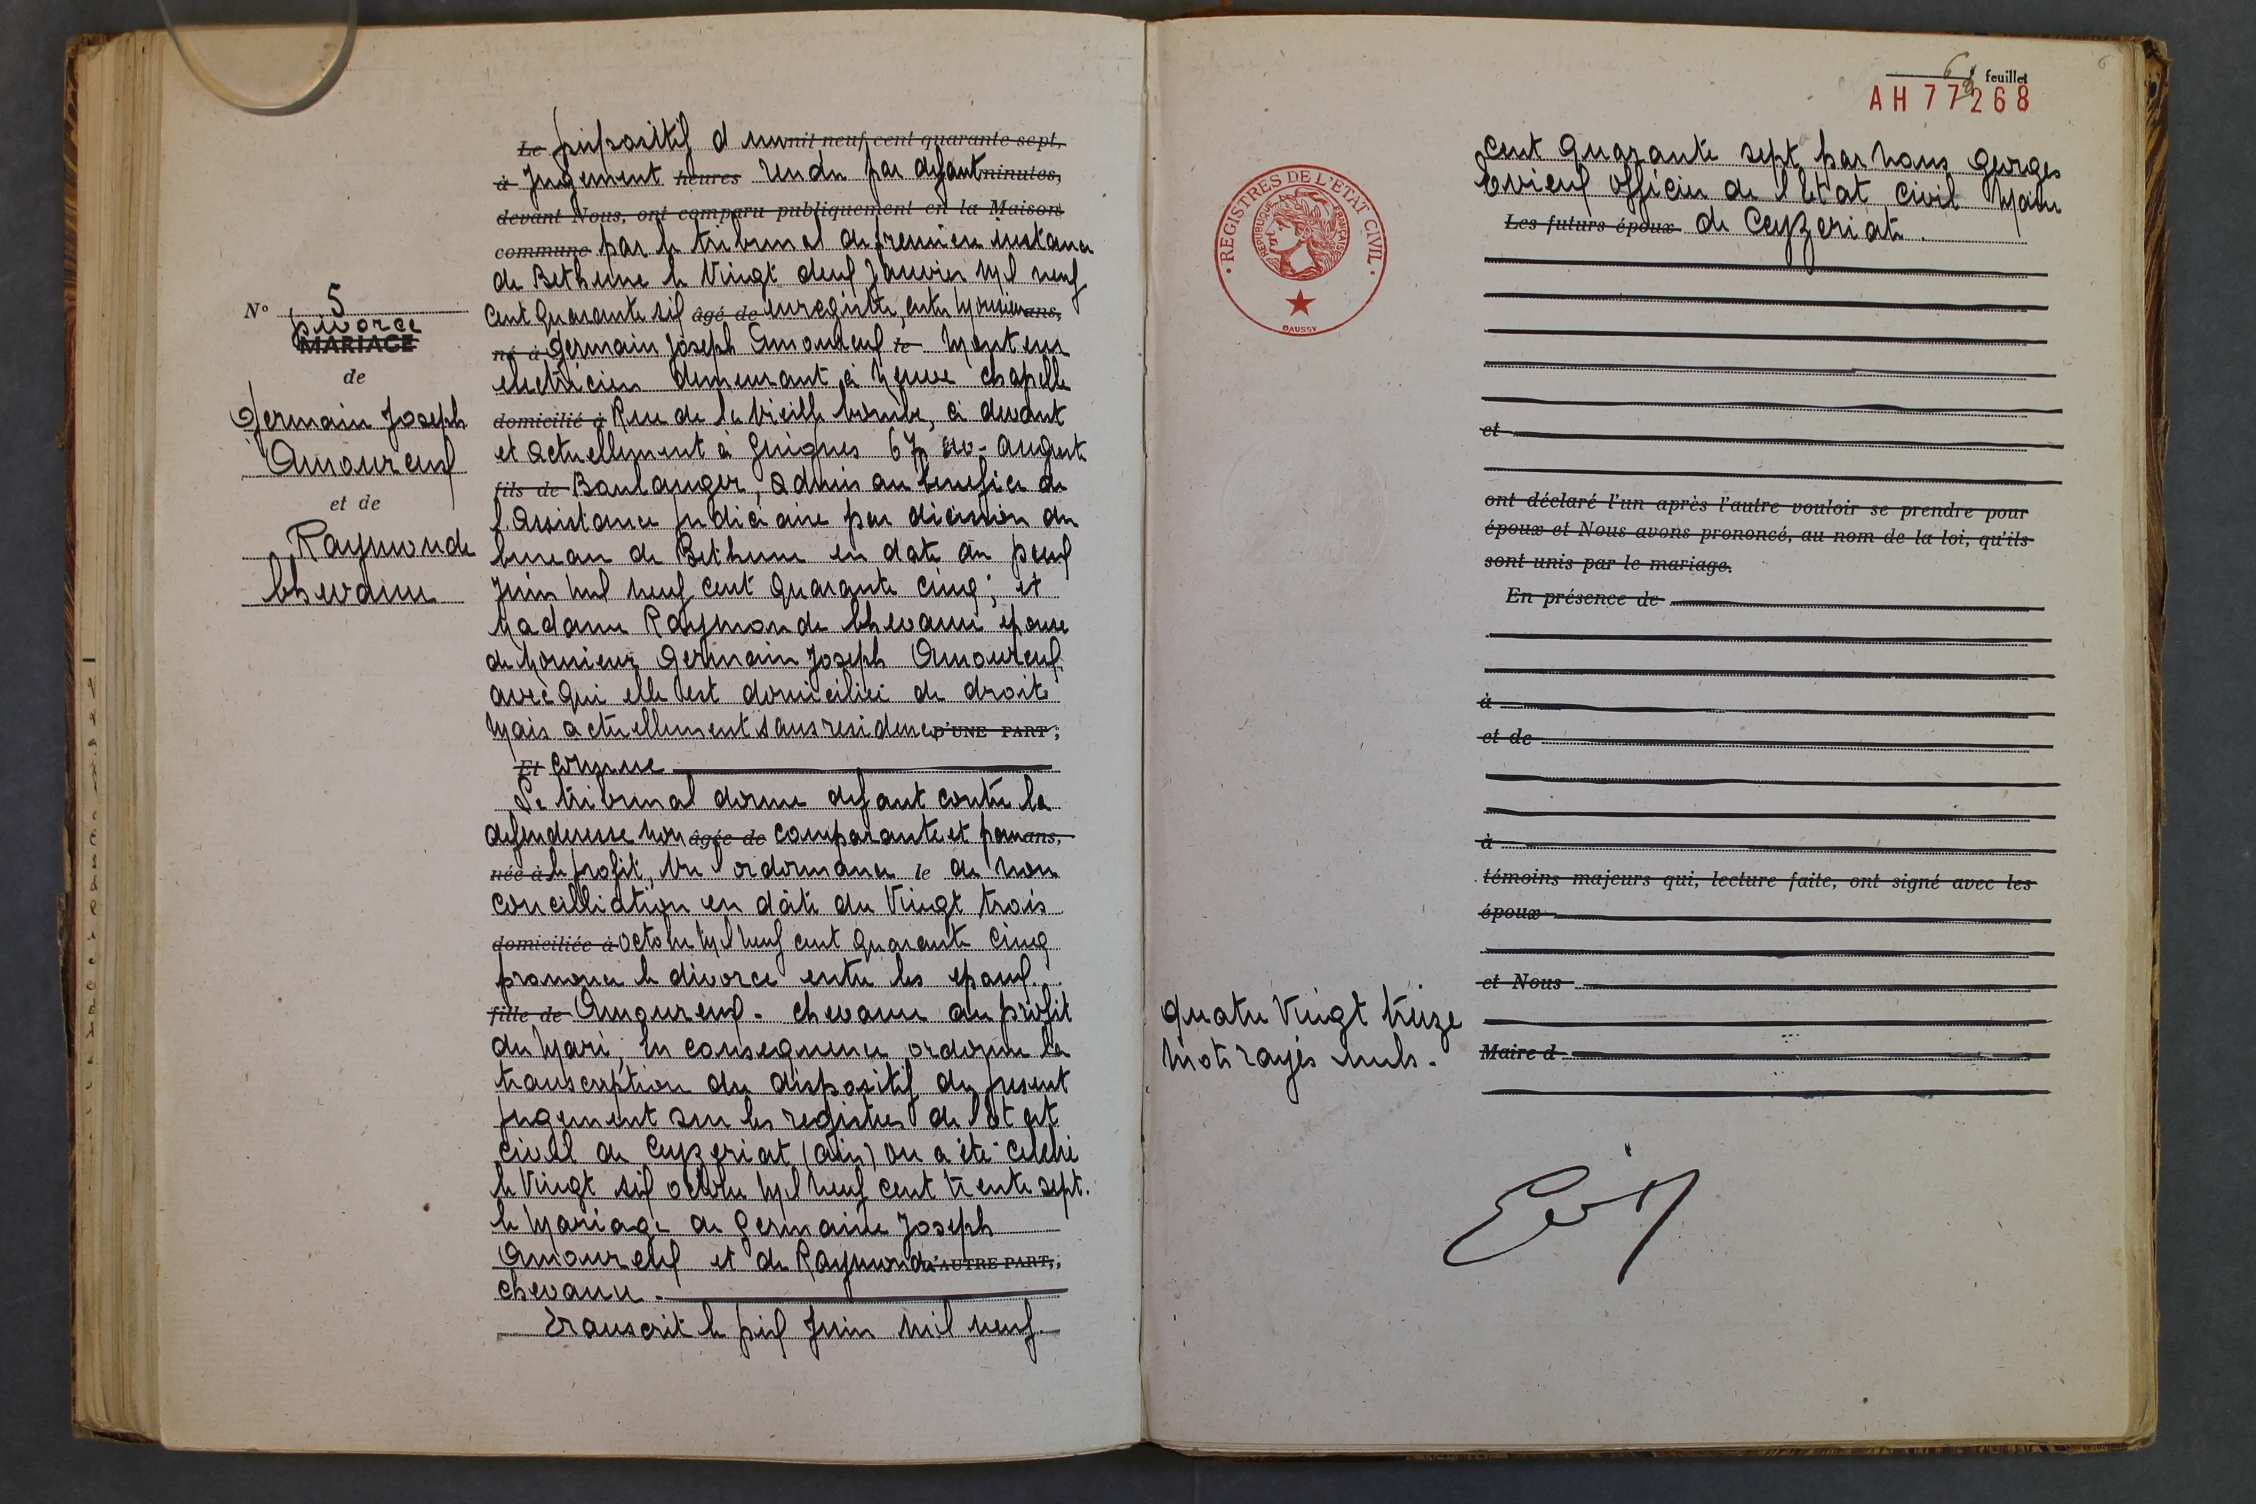 N° 5
Divorce
MARIAGE
de
Germain Joseph
Amoureux
et de
Raymonde
Chevanne
Le Dispositif d'un mil neuf cent quarante-sept,
à Jugement heures rendu par defaut minutes,
devant Nous, ont comparu publiquement en la Maison
commune par le tribunal de première instance
de Bethune le Vingt deux Janvier Mil neuf
Cent Quarante six âgé de enregistré, entre Monsieur ans,
né à Germain Joseph Amoureux le Monteur
electricien demeurant à Neuve chapelle
domicilié à Rue de la Vieille bombe, ci devant
et actuellement à Guignes 67 Auguste
fils de Boulanger, admis au benefice de
l'Assistance Judiciaire par dicision du
bureau de Bethune en date du Deux
Juin Mil neuf cent quarante cinq; et
Madame Raymonde Chevanne épouse
de Monsieur Germain Joseph Amoureux
avec qui elle est domiciliée de droite
Mais actuellement sans residence D'UNE PART;
Et connue
Le tribunal donne defaut contre la
defenderesse non âgée de comparante et pour ans,
née à le profit, Vu l'ordonnance le de non
concilliation en date du Vingt trois
domiciliée à octobre Mil neuf cent quarante cinq
prononce le divorce entre les epoux
fille de Amoureux - Chevanne au profit
du Mari, En consequence ordonne la
transcription du dispositif du present
Jugement sur les registres de l'etat
civil de Ceyzeriat (Ain) ou a été célébré
le Vingt six octobre Mil neuf cent trente sept.
le Mariage de Germain Joseph
Amoureux et de Raymonde D'AUTRE PART,
chevanne.
Transcrit le Dix Juin Mil neuf
feuillet
AH 77268
REGISTRES DE L'ETAT CIVIL
REPUBLIQUE FRANÇAISE
DAUSSY
Cent Quarante sept par Nous Georges
Evieux officier de l'Etat Civil Maire
Les futurs époux de Ceyzeriat.
et
ont déclaré l'un après l'autre vouloir se prendre pour
époux et Nous avons prononcé, au nom de la loi, qu'ils
sont unis par le mariage.
En présence de
à
et de
à
témoins majeurs qui, lecture faite, ont signé avec les
époux
et Nous
Maire d
Quatre Vingt treize
Mots rayés nuls.